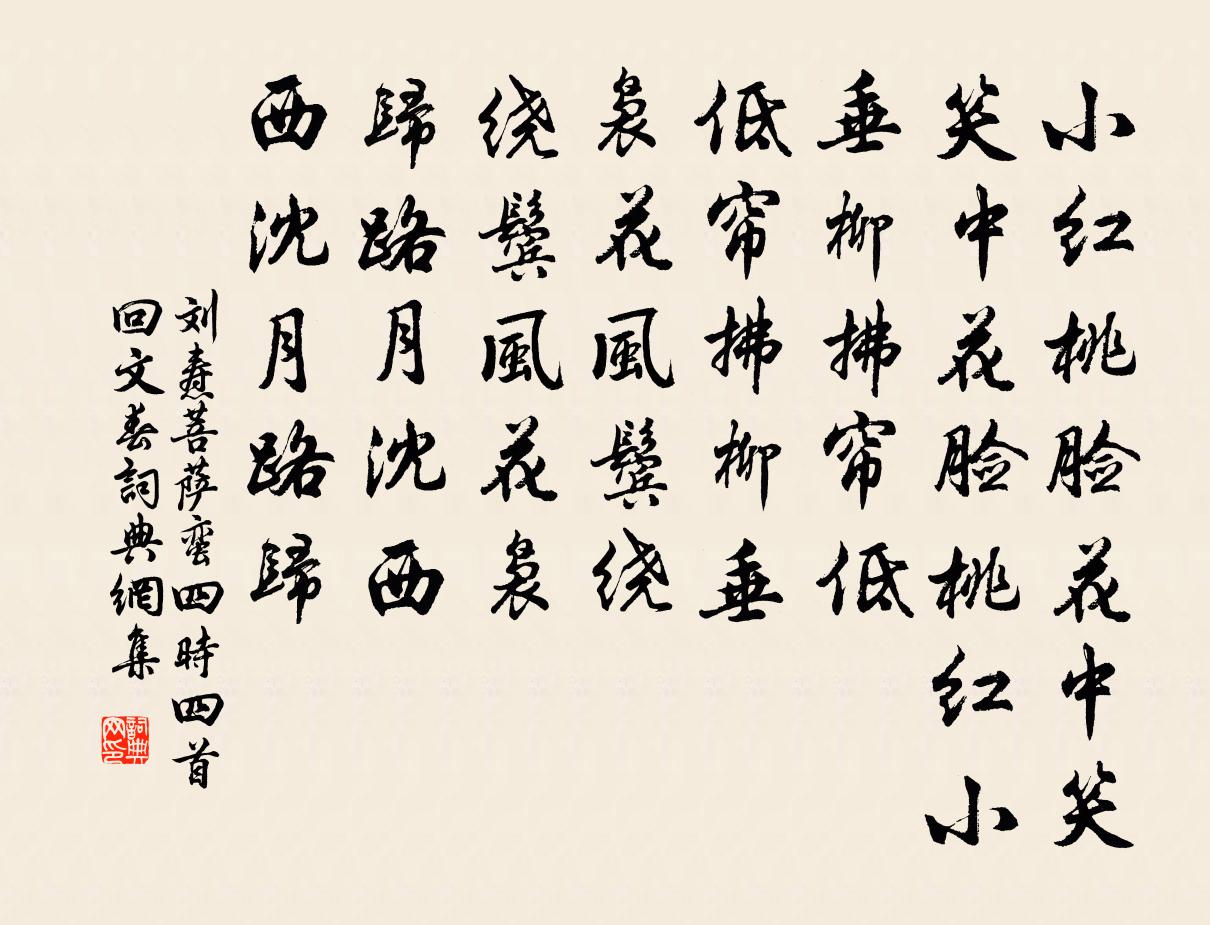 小红桃脸花中笑
笑中花脸桃红小
垂柳拂帘低
低帘拂柳垂
袅花風鬓绕
绕鬓風花袅
歸路月沈西
西沈月路歸
刘焘菩萨蛮四時四首
回文春詞典網集
詞典
网印